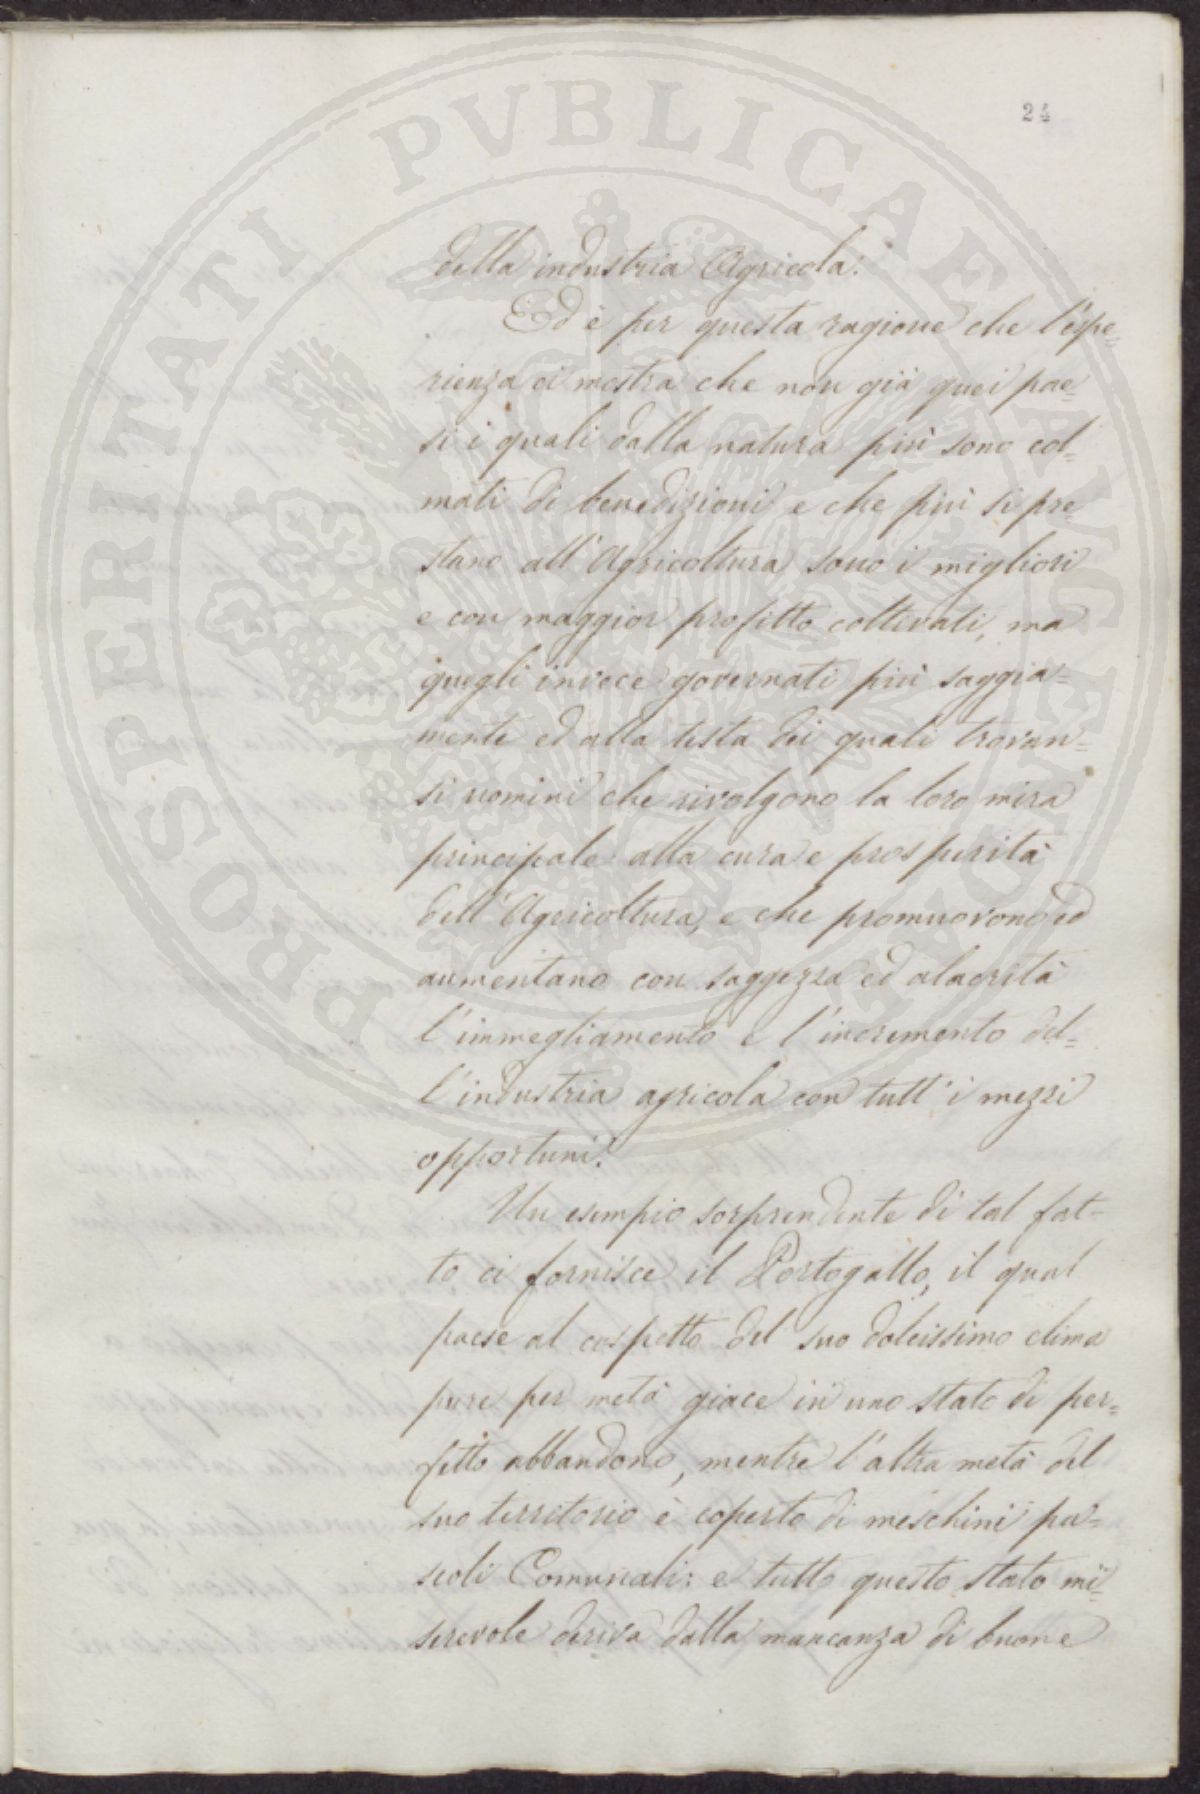 24
PROSPERITATI PVBLICAE AVGENDAE
della industria Agricola.
Ed è per questa ragione che l'espe=
rienza ci mostra che non già quei pae=
si i quali dalla natura più sono col=
mati di benedizioni e che più si pre=
stano all'Agricoltura sono i migliori
e con maggior profitto coltivati, ma
quegli invece governati più saggia=
mente ed alla testa dei quali trovan=
si uomini che rivolgono la loro mira
principale alla cura e prosperità
dell'Agricoltura, e che promuovono ed
aumentano con saggezza ed alacrità
l'immegliamento e l'incremento del=
l'industria agricola con tutt'i mezzi
opportuni.
Un esempio sorprendente di tal fat=
to ci fornisce il Portogallo, il qual
paese al cospetto del suo dolcissimo clima
pure per metà giace in uno stato di per=
fetto abbandono, mentre l'altra metà del
suo territorio è coperto di meschini pa=
scoli Comunali: e tutto questo stato mi=
serevole deriva dalla mancanza di buone